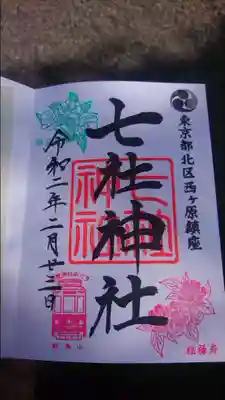 東京都北区西ヶ原鎮座
七社神社
七社
神社
令和二年二月廿三日
飛鳥山